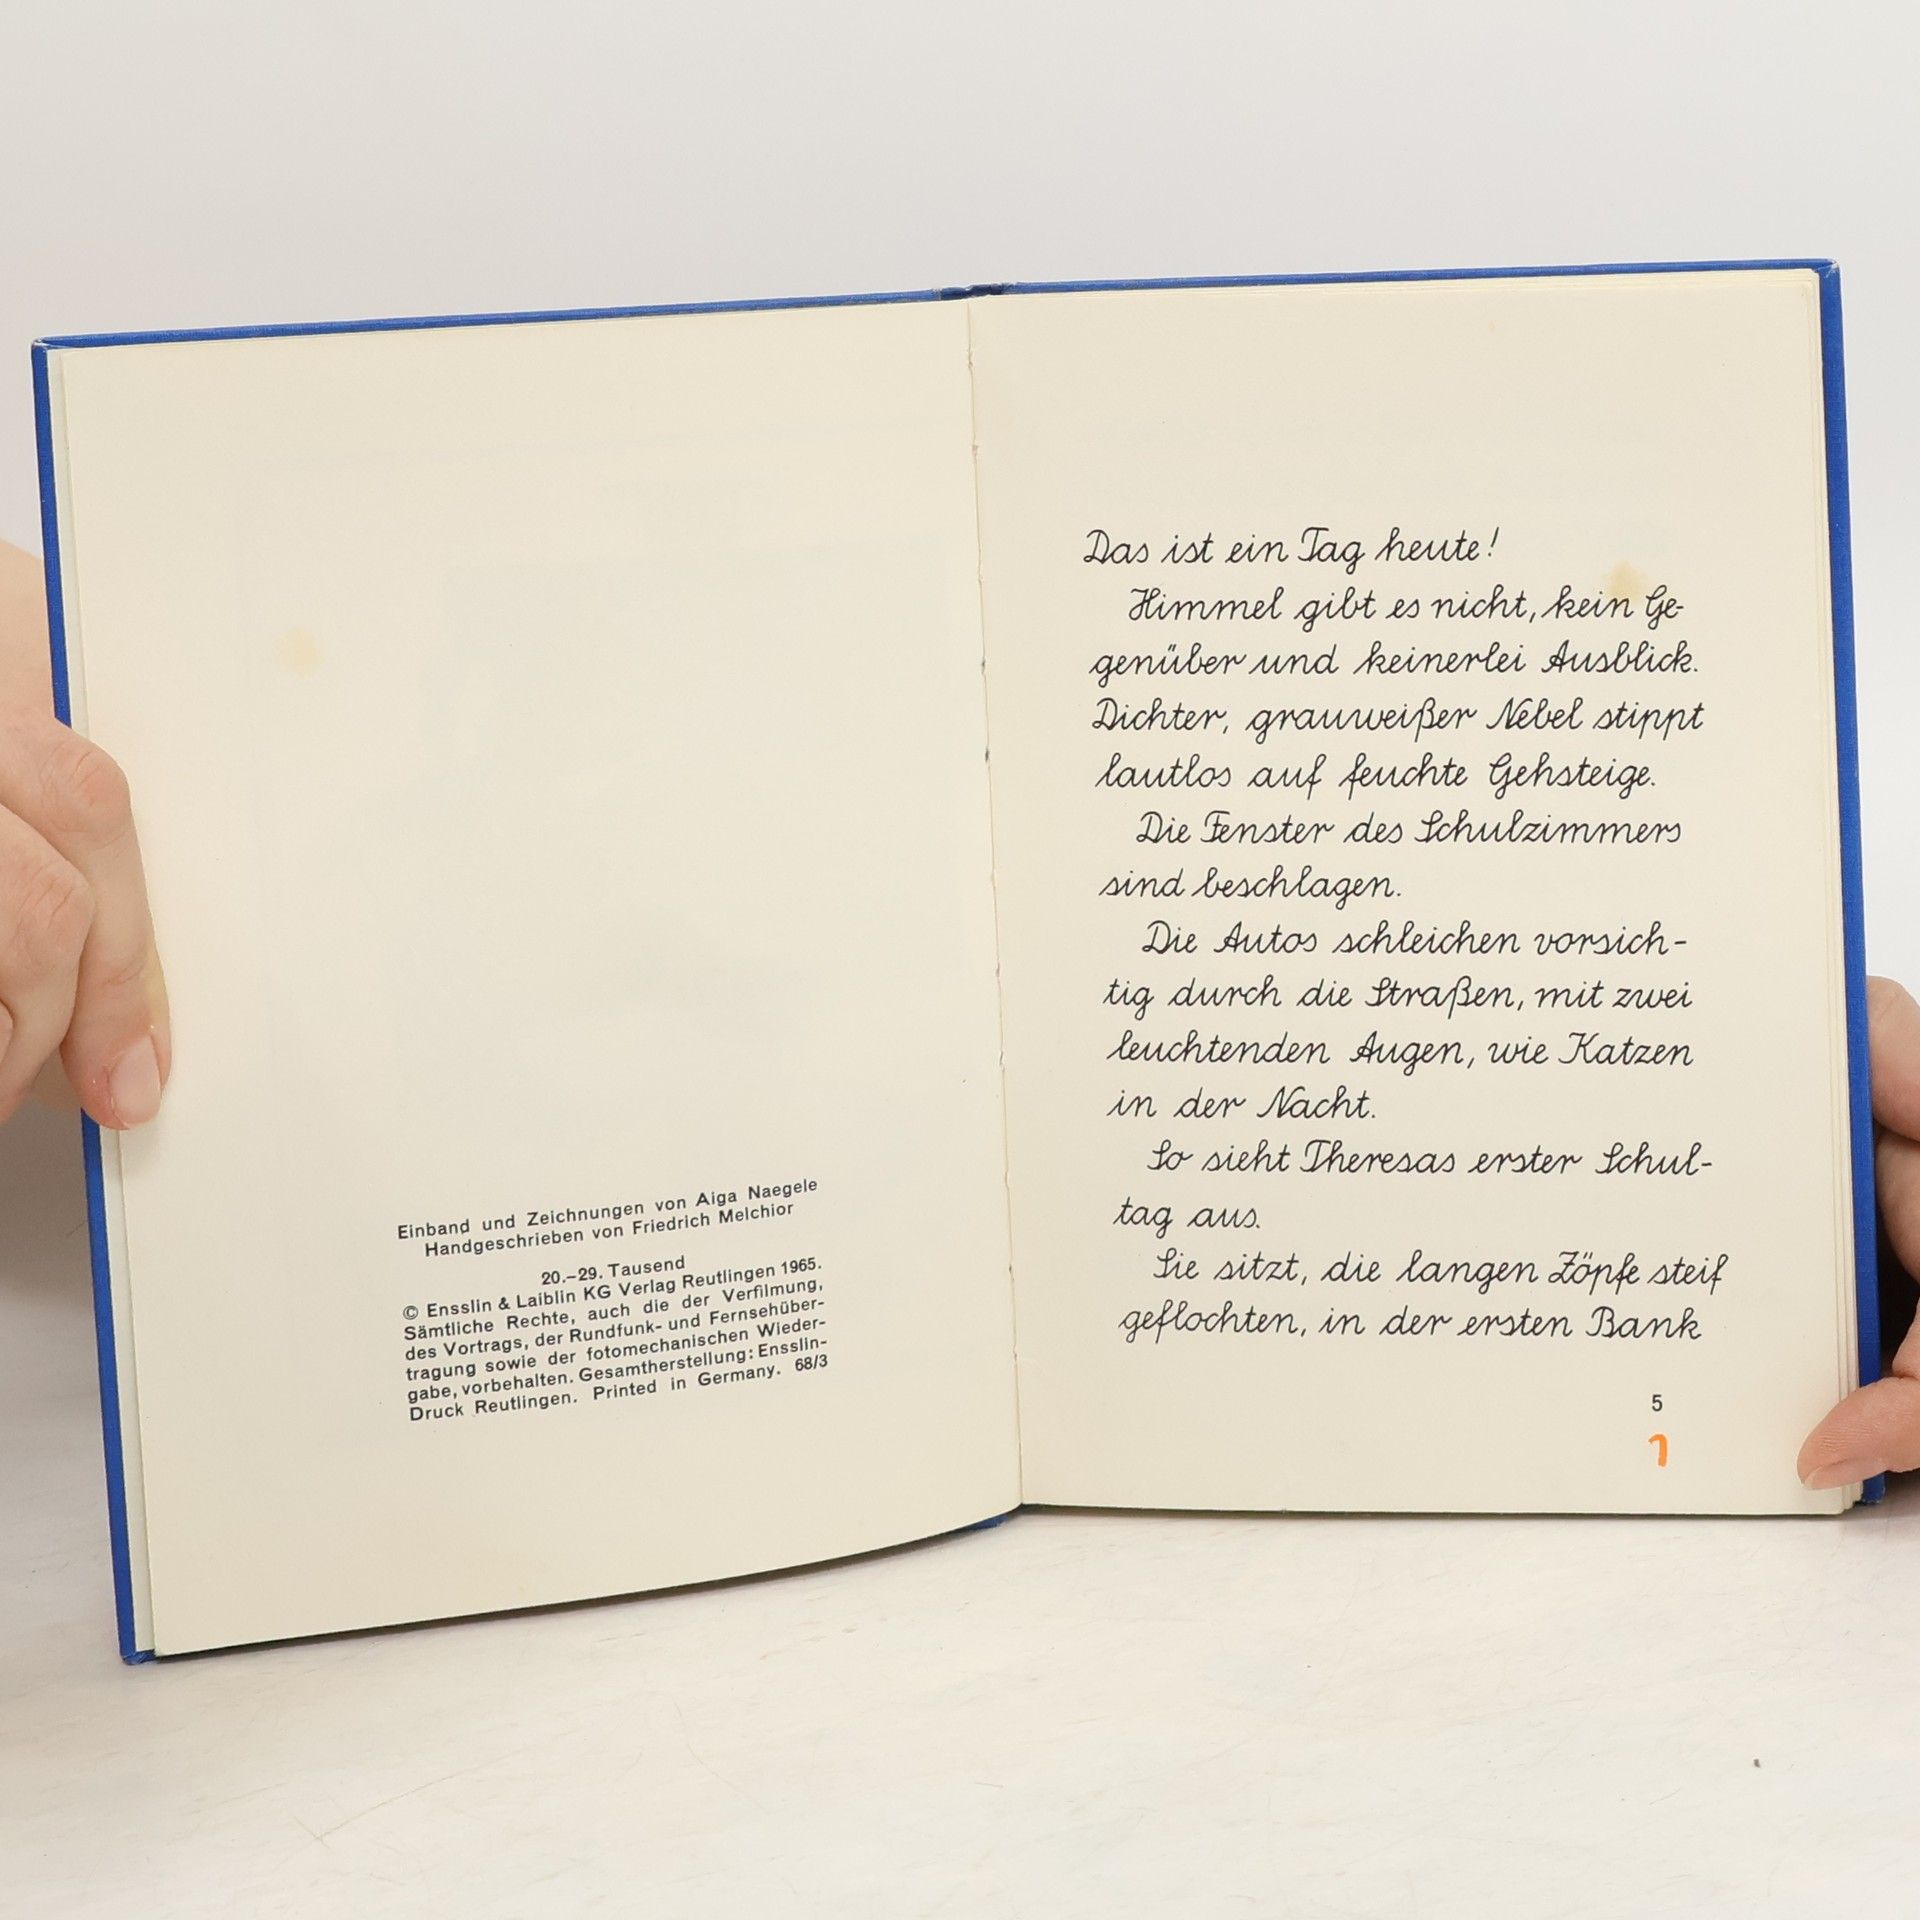 Einband und Zeichnungen von Aiga Naegele
Handgeschrieben von Friedrich Melchior
20.–29. Tausend
© Ensslin & Laiblin KG Verlag Reutlingen 1965.
Sämtliche Rechte, auch die der Verfilmung,
des Vortrags, der Rundfunk- und Fernsehüber-
tragung sowie der fotomechanischen Wieder-
gabe, vorbehalten. Gesamtherstellung: Ensslin-
Druck Reutlingen. Printed in Germany. 68/3
Das ist ein Tag heute!
Himmel gibt es nicht, kein Ge-
genüber und keinerlei Ausblick.
Dichter, grauweißer Nebel stippt
lautlos auf feuchte Gehsteige.
Die Fenster des Schulzimmers
sind beschlagen.
Die Autos schleichen vorsich-
tig durch die Straßen, mit zwei
leuchtenden Augen, wie Katzen
in der Nacht.
So sieht Theresas erster Schul-
tag aus.
Sie sitzt, die langen Zöpfe steif
geflochten, in der ersten Bank
5
1